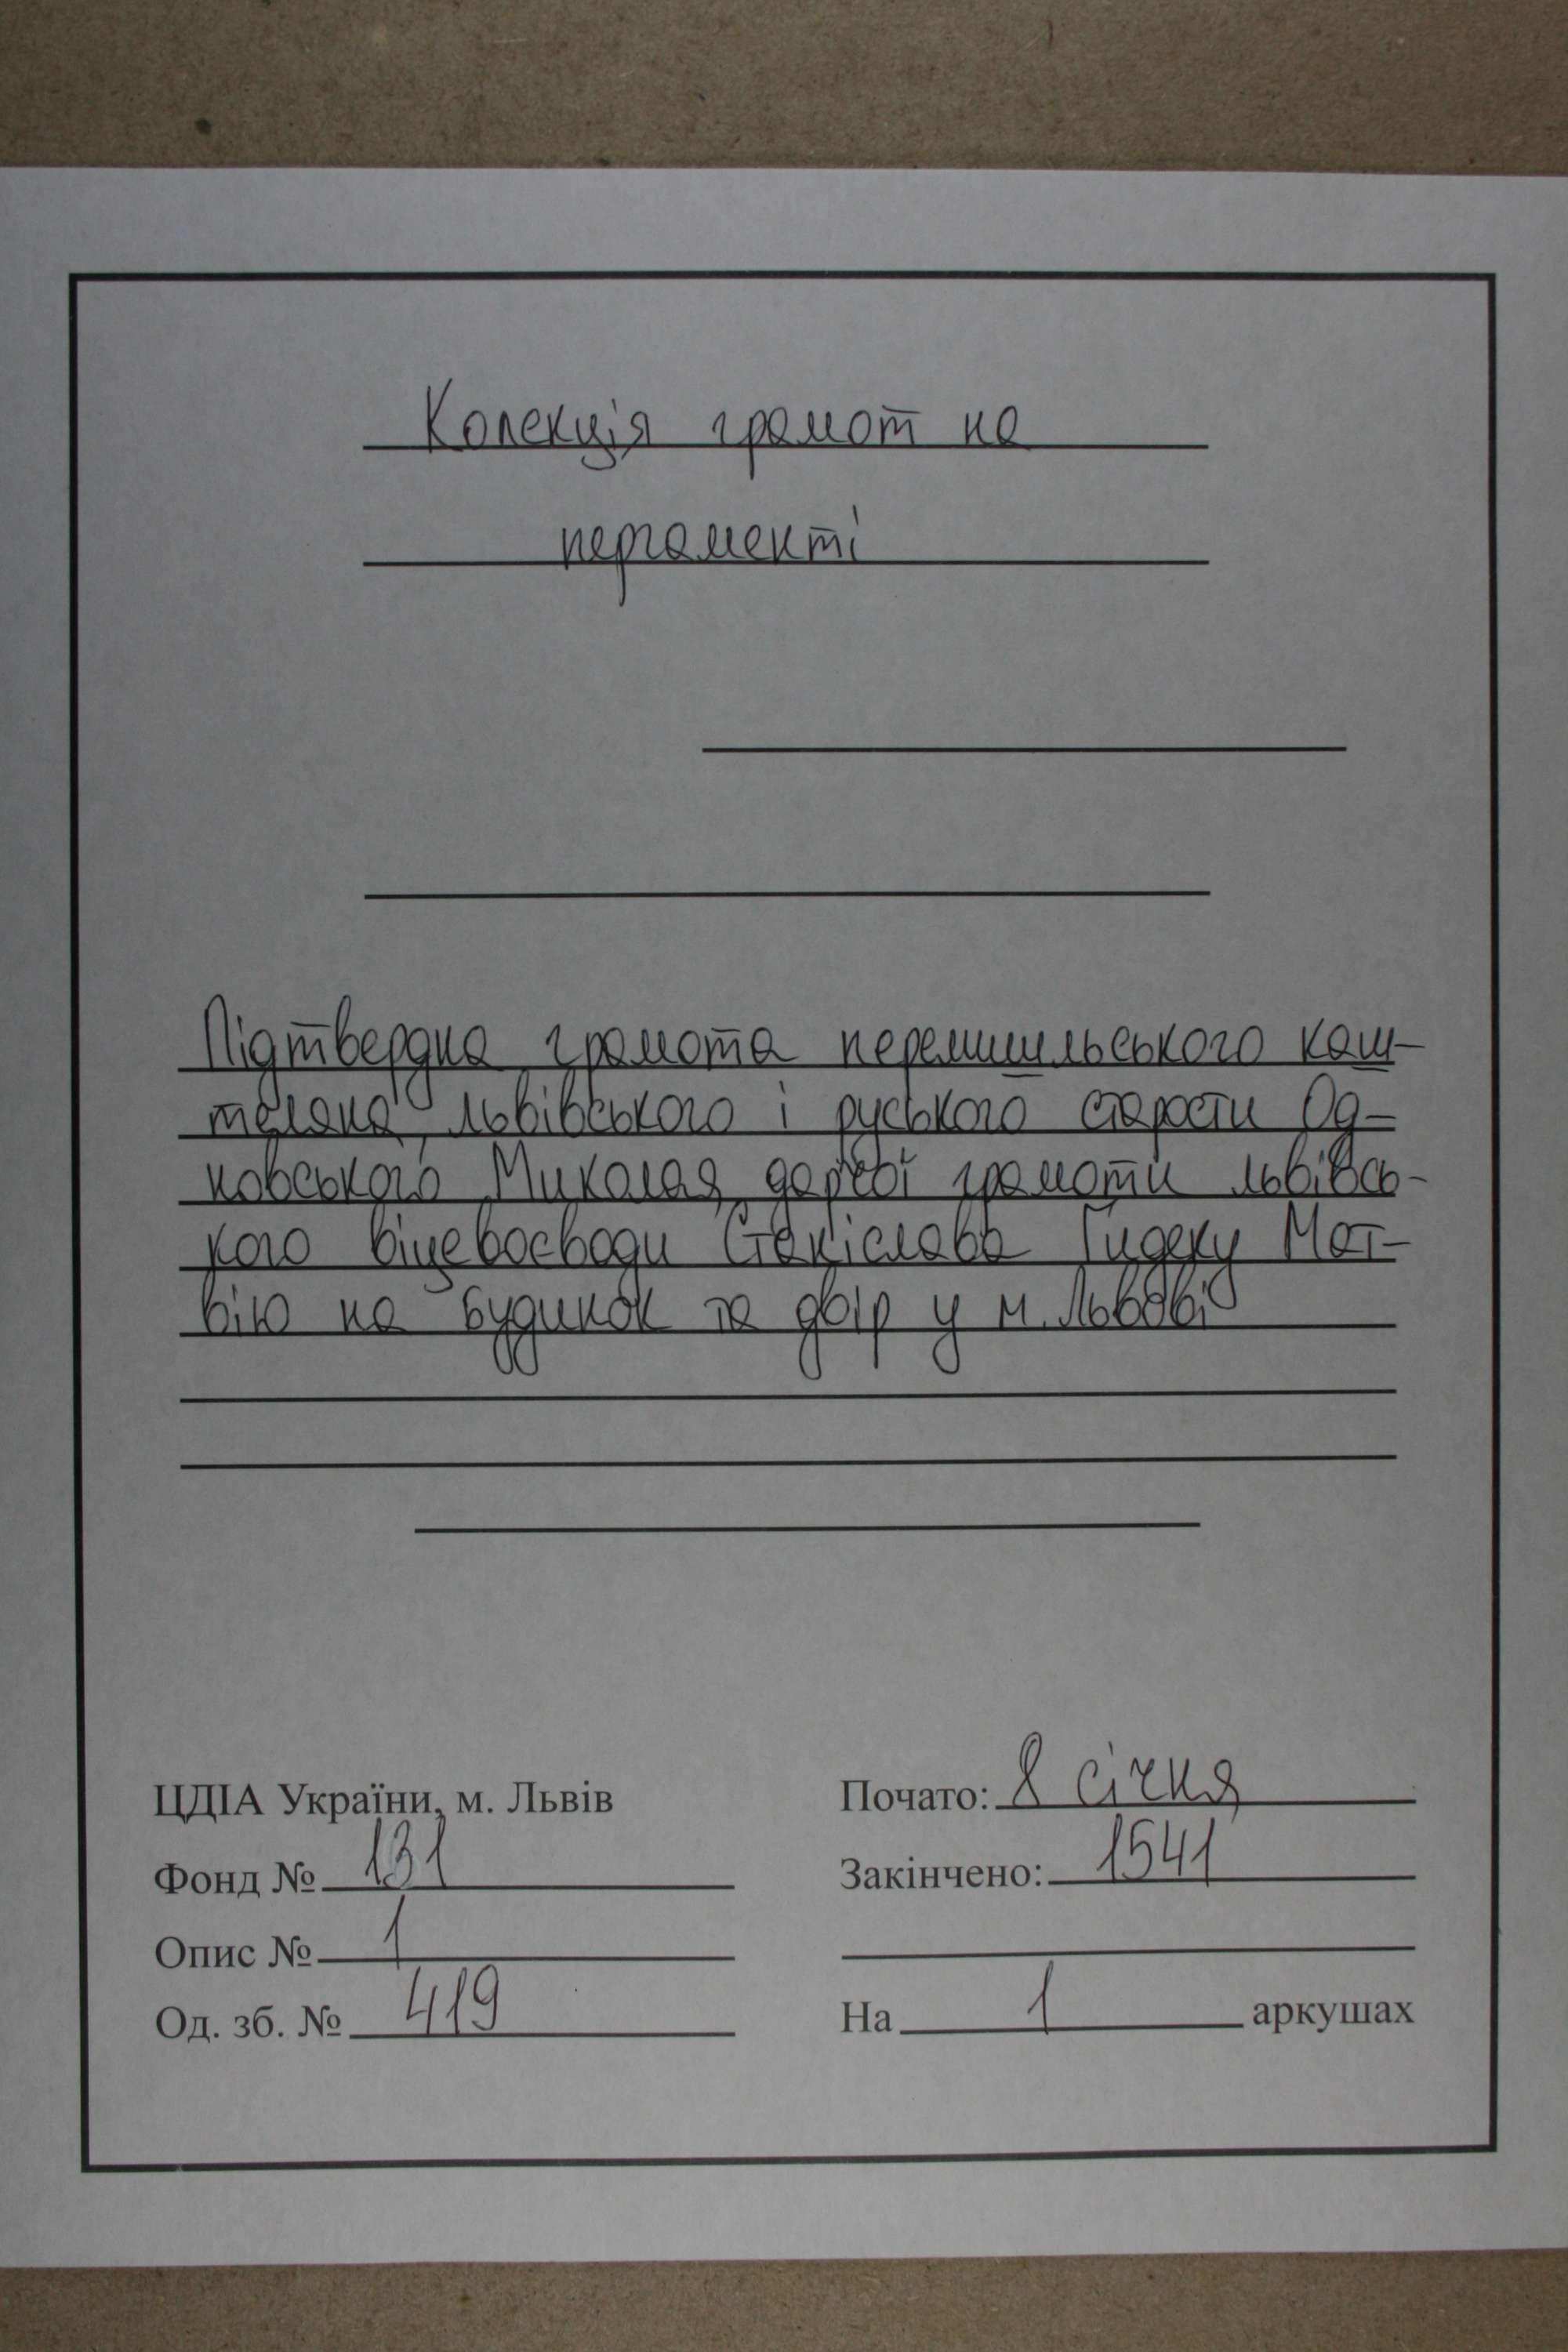 Колекція грамот на
пергаменті
Підтвердна грамота перемишльського каш-
теляна, львівського і руського старости Од-
новського Миколая дарчої грамоти львівсь-
кого віцевоєводи Станіслава Гидеку Мат-
вію на будинок та двір у м. Львові
ЦДІА України, м. Львів
Почато: 8 січня
Фонд № 131
Закінчено: 1541
Опис № 1
Од. зб. № 419
На 1 аркушах